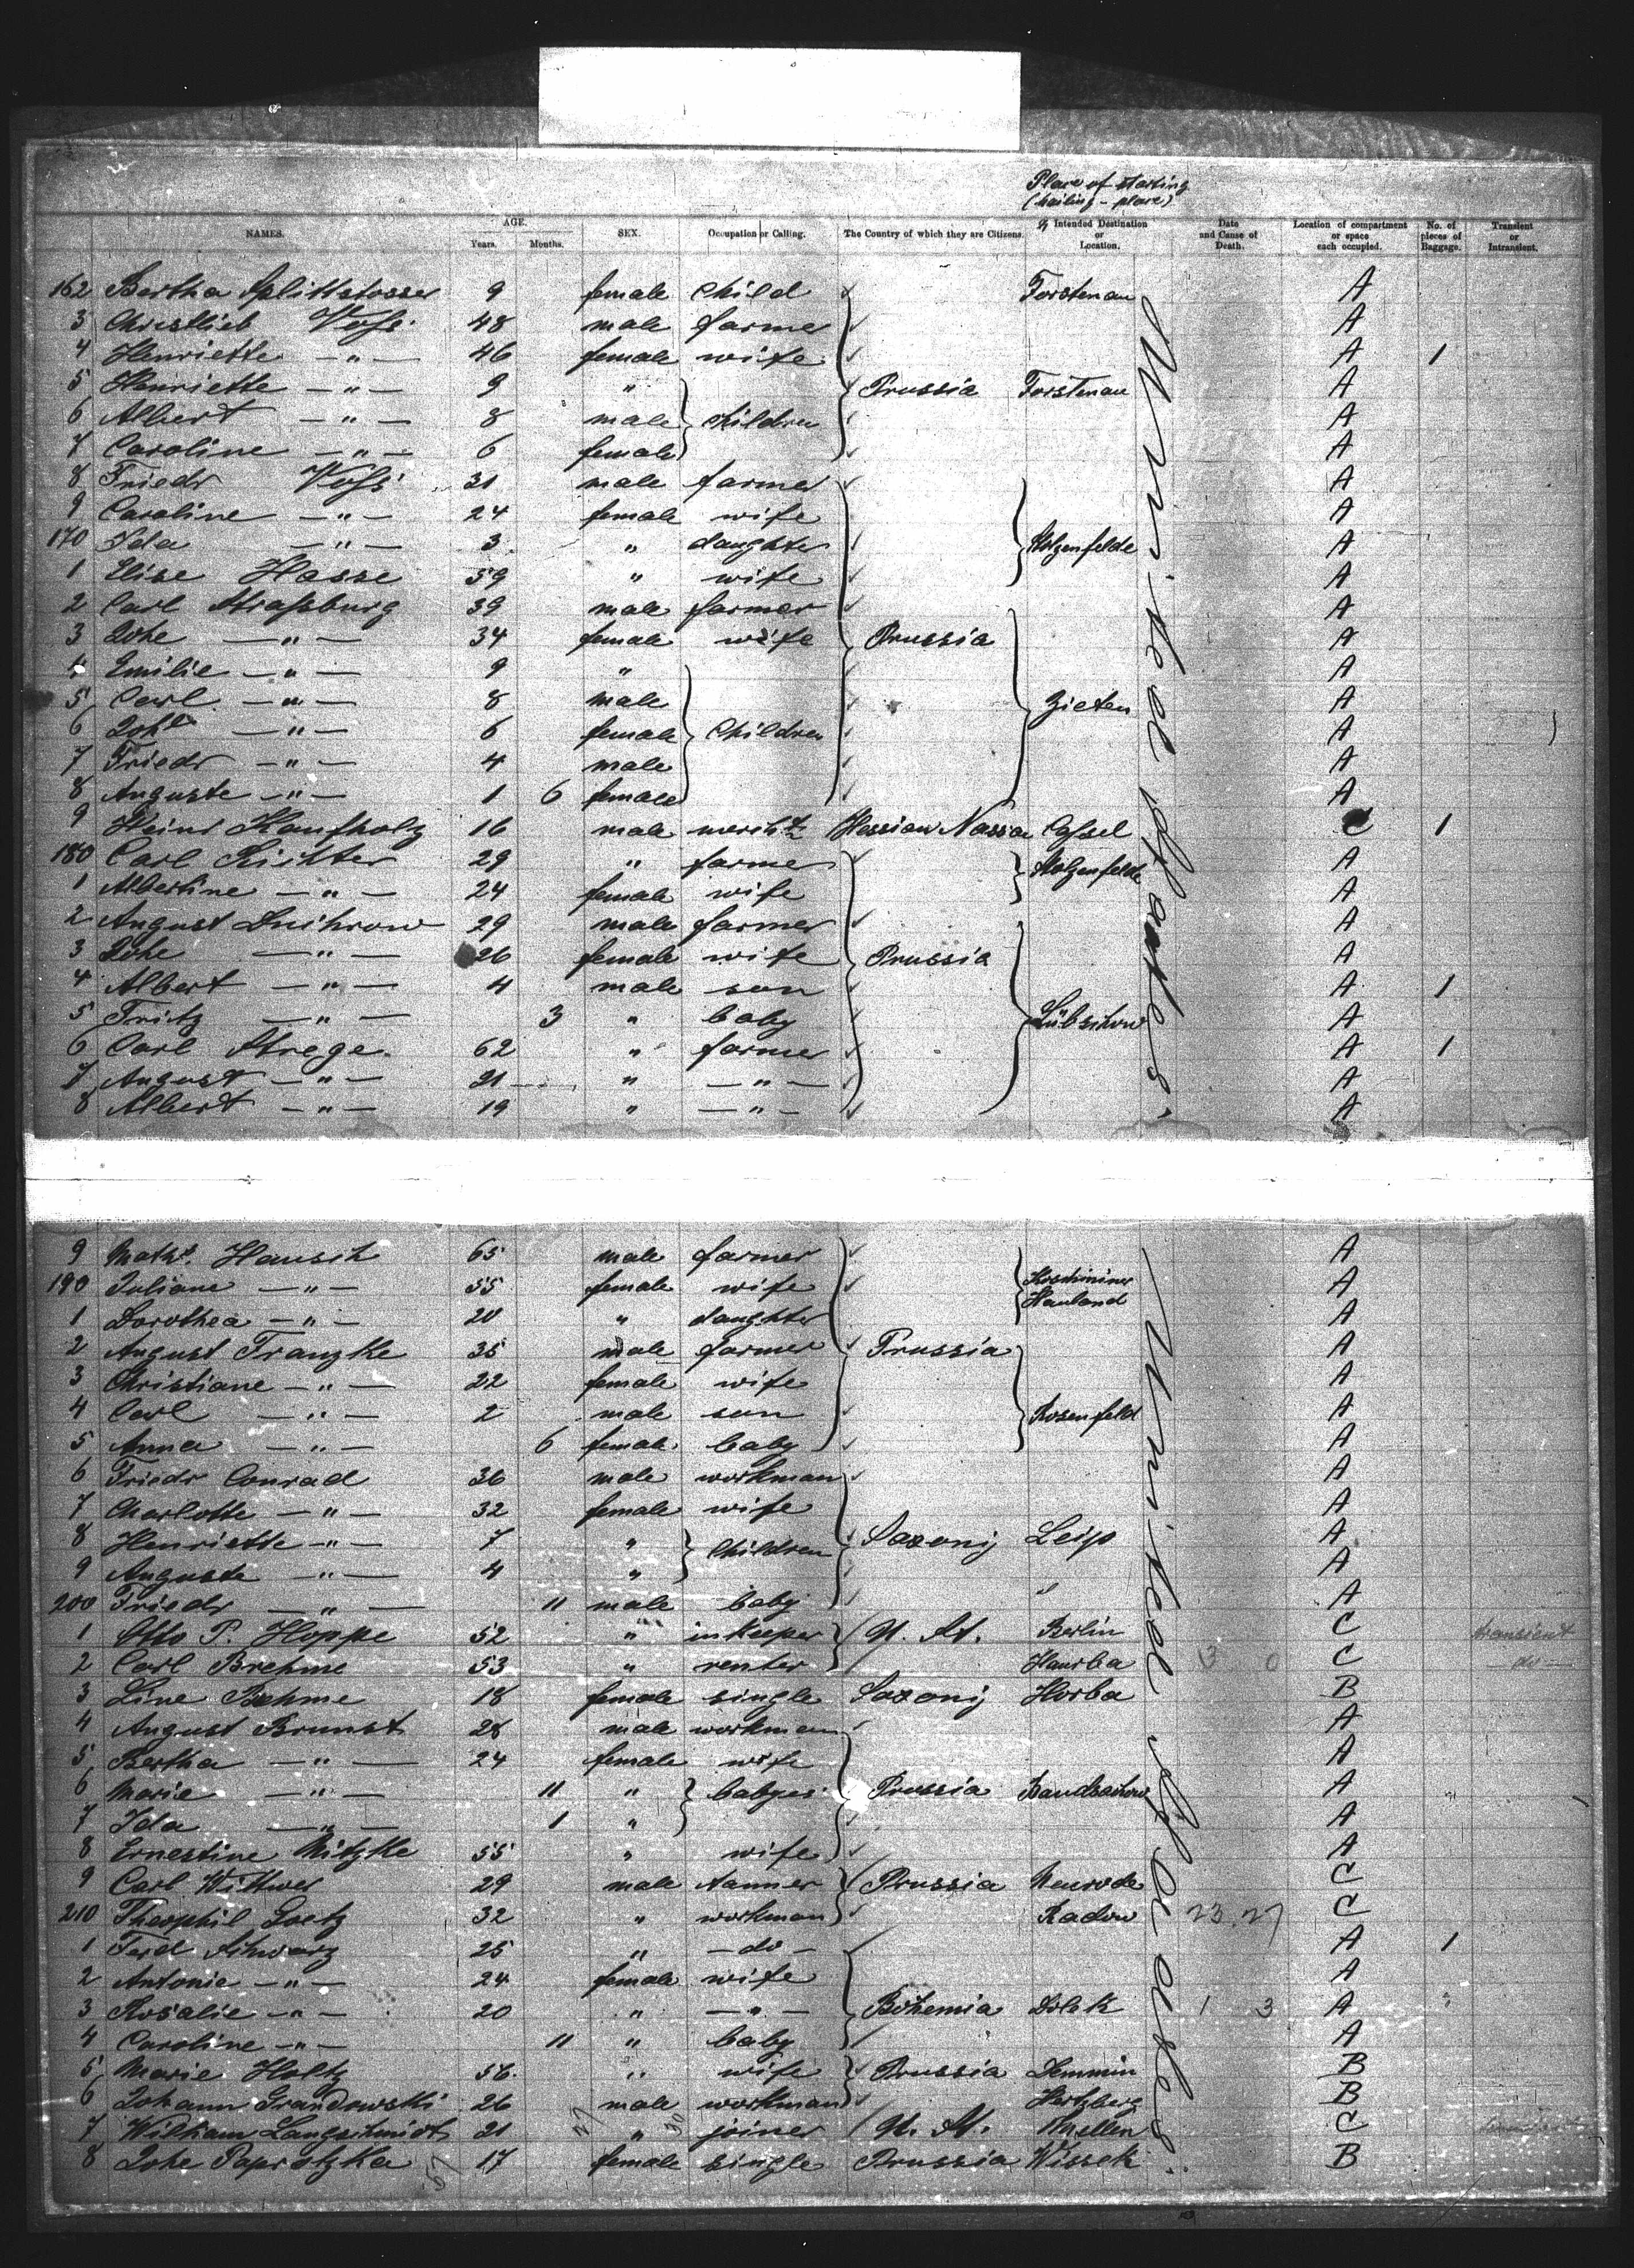 Place of starting
(hailing - place)
NAMES. AGE. Years. Months. SEX. Occupation or Calling. The Country of which they are Citizens. Intended Destination or Location. Date and Cause of Death. Location of compartment or space each occupied. No. of pieces of Baggage. Transient or Intransient.
162 Bertha Splittstosser 9 female child Forstenau A
3 Christlieb Voss 48 male farmer A
4 Henriette -"- 46 female wife A 1
5 Henriette -"- 9 " Prussia Forstenau A
6 Albert -"- 8 male children A
7 Caroline -"- 6 female A
8 Friedr Voss 31 male farmer A
9 Caroline -"- 24 female wife A
170 Ida -"- 3 " daughter Stolzenfelde A
1 Elise Hasse 59 " wife A
2 Carl Strassburg 39 male farmer A
3 Johe -"- 34 female wife Prussia A
4 Emilie -"- 9 " A
5 Carl -"- 8 male Zieten A
6 Johe -"- 6 female Children A
7 Friedr -"- 4 male A
8 Auguste -"- 1 6 female A
9 Heinr Kaufholz 16 male mercht Hessian Nassau Cassel C 1
180 Carl Richter 29 " farmer Stolzenfelde A
1 Albertine -"- 24 female wife A
2 August Duchrow 29 male farmer A
3 Johe -"- 26 female wife Prussia A
4 Albert -"- 4 male son A 1
5 Fritz -"- 3 " baby Lübschow A
6 Carl Strege 62 " farmer A 1
7 August -"- 21 " -"- A
8 Albert -"- 19 " -"- A
9 Hausch 65 male farmer A
190 Juliane -"- 55 female wife Hauland A
1 Dorothea -"- 20 " daughter A
2 August Franzke 35 male farmer Prussia A
3 Christiane -"- 22 female wife A
4 Carl -"- 2 male son Rosenfeld A
5 Anna -"- 6 female baby A
6 Friedr Conrad 36 male workman A
7 Charlotte -"- 32 female wife A
8 Henriette -"- 7 " Children Saxony Leip A
9 Auguste -"- 4 " A
200 Friedr -"- 11 male baby A
1 Otto P. Hoppe 52 " inkeeper U. St. Berlin C transient
2 Carl Brehme 53 " renter C do
3 Line Brehme 18 female single Saxony Horba B
4 August Brunst 28 male workman A
5 Bertha -"- 24 female wife A
6 Marie -"- 11 " babyes Prussia A
7 Ida -"- 1 " A
8 Ernestine Nitzke 55 " wife A
9 Carl Wittwer 29 male tanner Prussia Neurode C
210 Theophil Goetz 32 " workman Radow 23.27 C
1 Ferd Schwarz 25 " -do- A 1
2 Antonie -"- 24 female wife A
3 Rosalie -"- 20 " -"- Bohemia 1 3 A
4 Caroline -"- 11 " baby A
5 Marie Holtz 56 " wife Prussia Demmin B
6 Johann Grandowski 26 male workman Hertzberg B
7 William Langschmidt 21 " joiner U. St. Mellen C
8 Johe Paprotzka 17 female single Prussia Wissek B